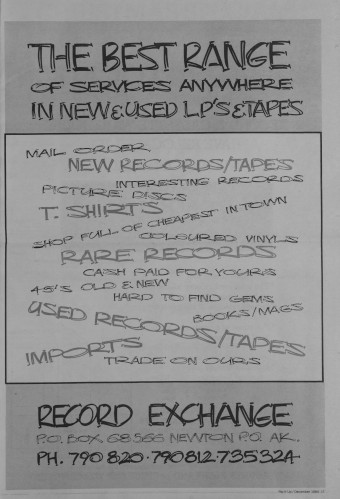 THE BEST RANGE
OF SERVICES ANYWHERE
IN NEW & USED LP'S & TAPES
MAIL ORDER
NEW RECORDS/TAPES
INTERESTING RECORDS
PICTURE DISCS
T. SHIRTS
SHOP FULL OF CHEAPEST IN TOWN
COLOURED VINYLS
RARE RECORDS
CASH PAID FOR YOURS
45'S OLD & NEW
HARD TO FIND GEMS
BOOKS/MAGS
USED RECORDS/TAPES
IMPORTS
TRADE ON OURS
RECORD EXCHANGE
P.O. BOX 68566 NEWTON P.O. AK.
PH. 790 820 · 790812 · 735324